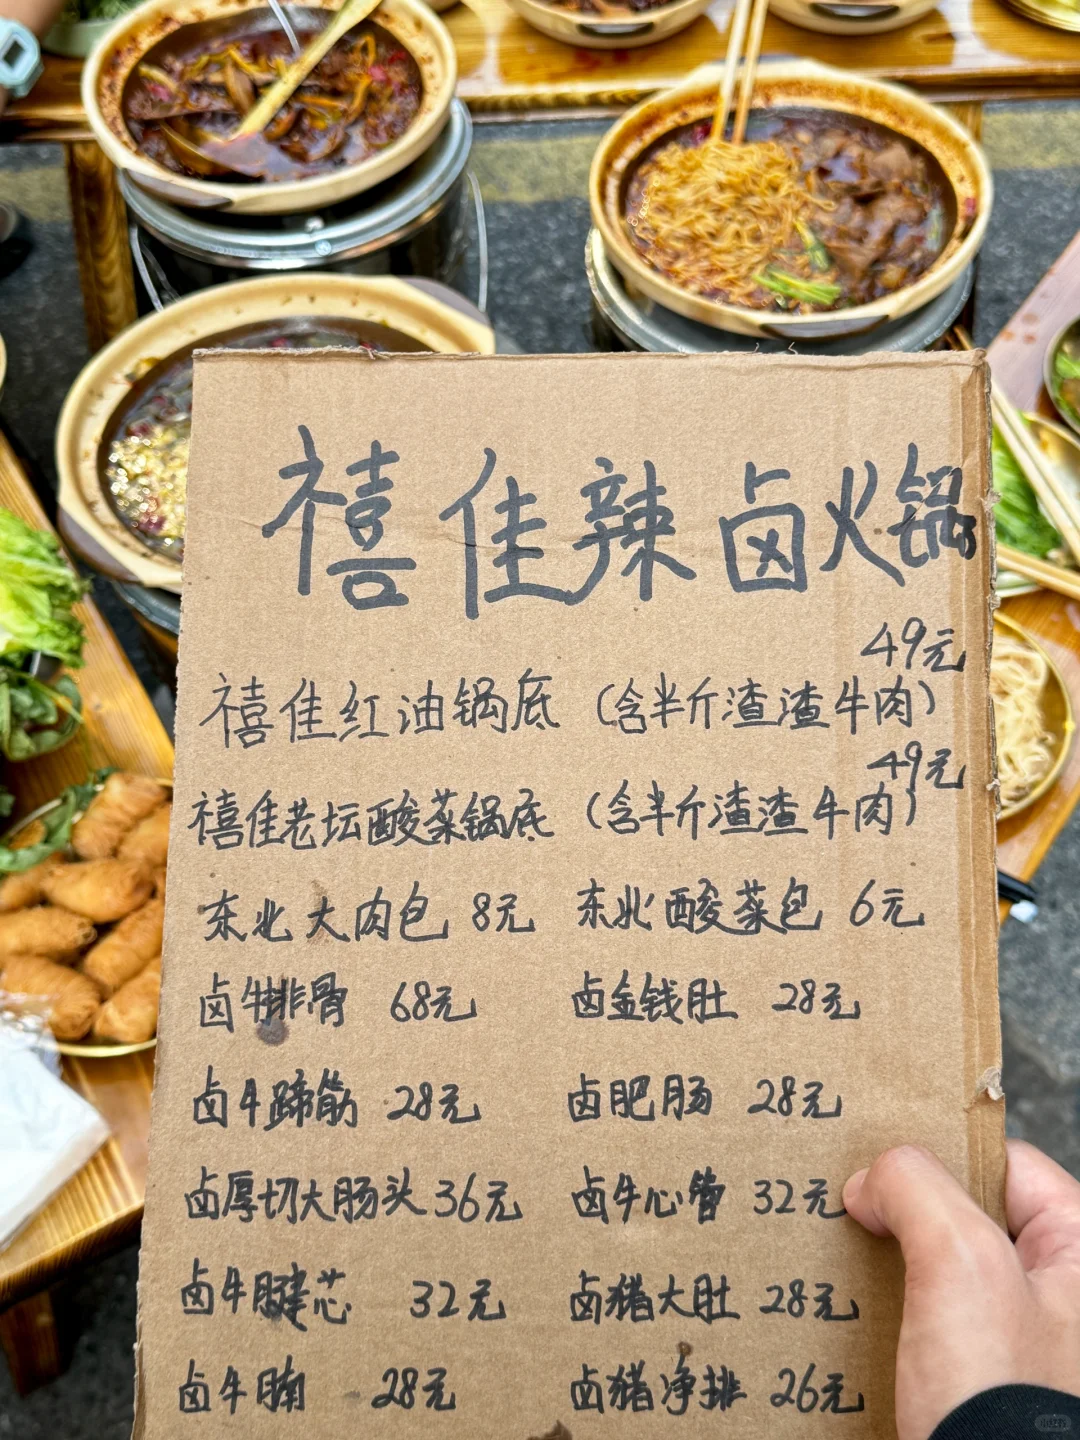 禧佳辣卤火锅
49元
禧佳红油锅底（含半斤渣渣牛肉）
49元
禧佳老坛酸菜锅底（含半斤渣渣牛肉）
东北大肉包 8元 东北酸菜包 6元
卤牛排骨 68元 卤金钱肚 28元
卤牛蹄筋 28元 卤肥肠 28元
卤厚切大肠头 36元 卤牛心管 32元
卤牛腱芯 32元 卤猪大肚 28元
卤牛腩 28元 卤猪净排 26元